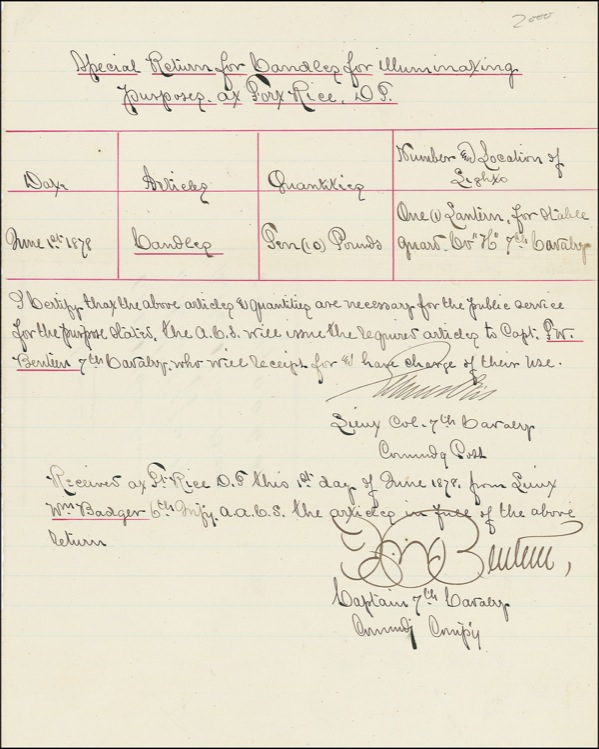 2000
Special Return for Candles for illuminating
purposes at Fort Rice, D.T.
Date
Articles
Quantities
Number & Location of
Lights
June 1st 1878
Candles
Ten (10) Pounds
One (1) Lantern, for stable
guard. Co "H" 7th Cavalry
I Certify that the above articles & quantities are necessary for the public service
for the purpose stated. The A.C.S. will issue the required articles to Capt. F.W.
Benteen 7th Cavalry, who will receipt for & have charge of their use.
Lieut Col. 7th Cavalry
Comundg Post
Received at Ft. Rice D.T this 1st day of June 1878, from Lieut
Wm Badger 6th Infy. A.A.C.S. the articles in full of the above
return
Benteen,
Captain 7th Cavalry
Comundg Compy